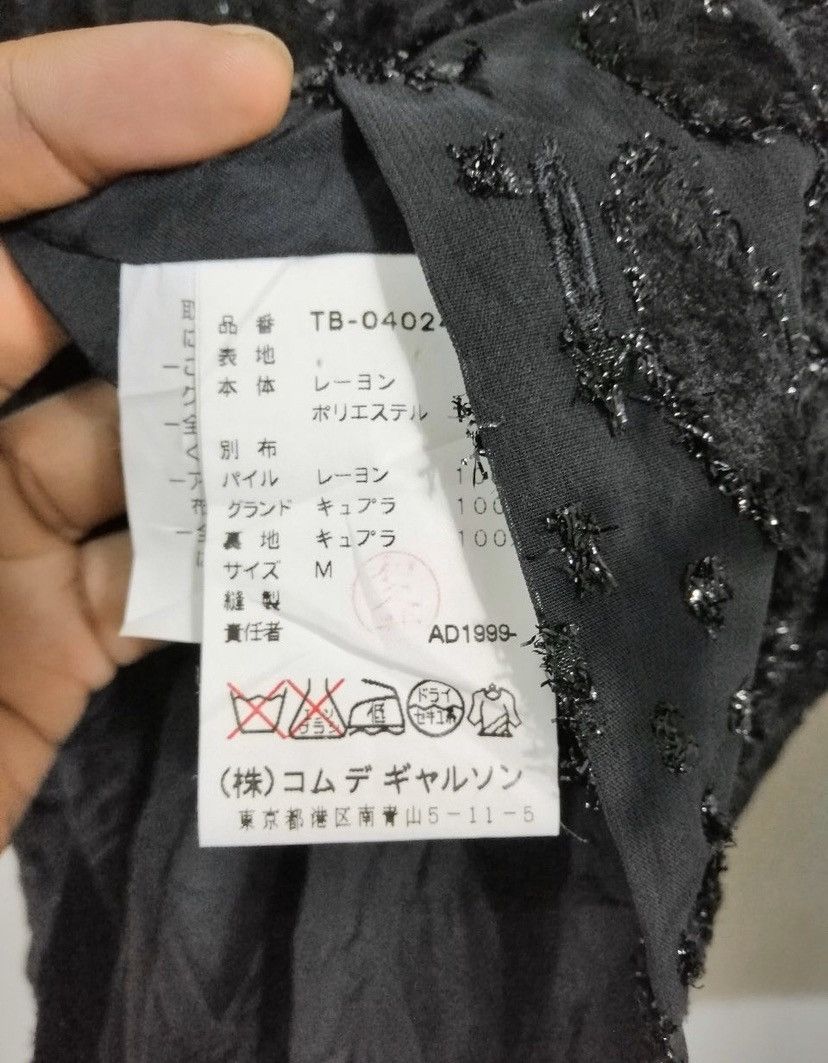 品番 TB-0402
表地
本体 レーヨン
ポリエステル
別布
パイル レーヨン 10
グランド キュプラ 100
裏地 キュプラ 100
サイズ M
縫製
責任者 AD1999-
エンソ
ブラシ
低
ドライ
セキユ系
(株)コム デ ギャルソン
東京都港区南青山5-11-5
取
に
全
く
ア
布
全